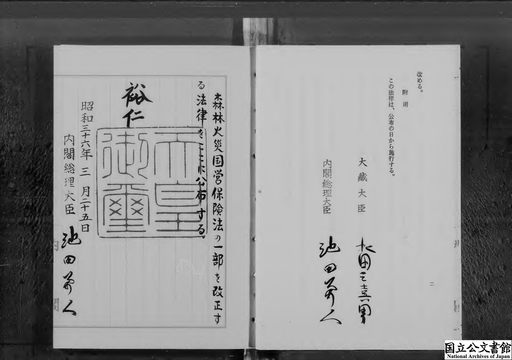 改める。
附則
この法律は、公布の日から施行する。
大蔵大臣 水田三喜男
内閣総理大臣 池田勇人
二
森林火災国営保険法の一部を改正す
る法律をここに公布する。
裕仁
天皇御璽
昭和三十六年三月二十五日
内閣総理大臣 池田勇人
国立公文書館
National Archives of Japan